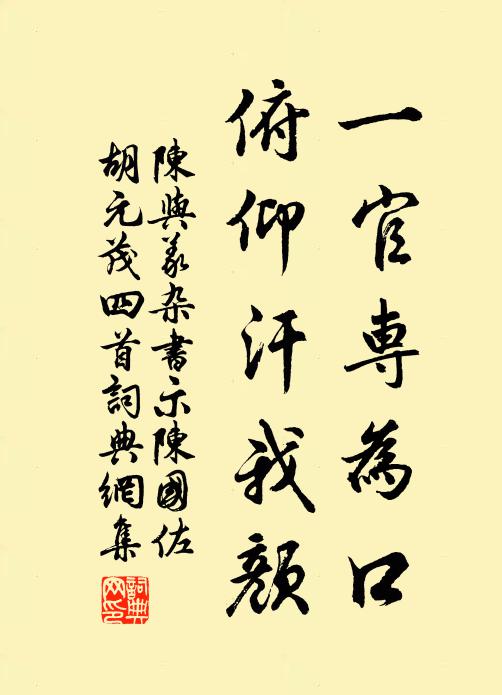 一官專為口
俯仰汗我顏
陳與義杂書示陳國佐
胡元茂四首詞典網集
詞典网印